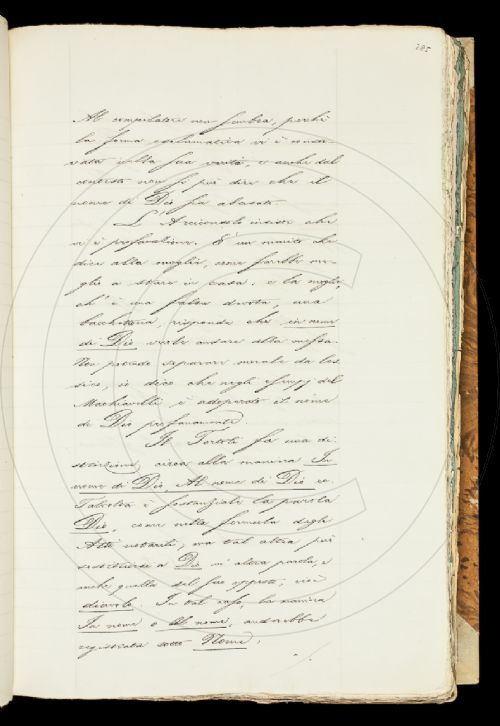 285
Al compilatore non sembra, perchè
la forma esclamativa vi è conser-
vata nella sua verità, e anche dal
contesto non si può dire che il
nome di Dio sia abusato.
L'Arciconsolo insiste che
vi è profanazione. È un marito che
dice alla moglie, come farebbe me-
glio a stare in casa: e la moglie,
ch'è una falsa devota, una
bacchettona, risponde che in nome
di Dio vuole andare alla messa.
Non potendo separare morale da les-
sico, io dico che negli esempj del
Machiavelli è adoperato il nome
di Dio profanamente.
Il Tortoli fa una di-
stinzione circa alla maniera In
nome di Dio Al nome di Dio ec.
Talvolta è sostanziale la parola
Dio, come nella formula degli
Atti notarili; ma tal altra può
sostituirsi a Dio un'altra parola, e
anche quella del suo opposto, cioè
diavolo. In tal caso, la maniera
In nome o Al nome, andrebbe
registrata sotto Nome.